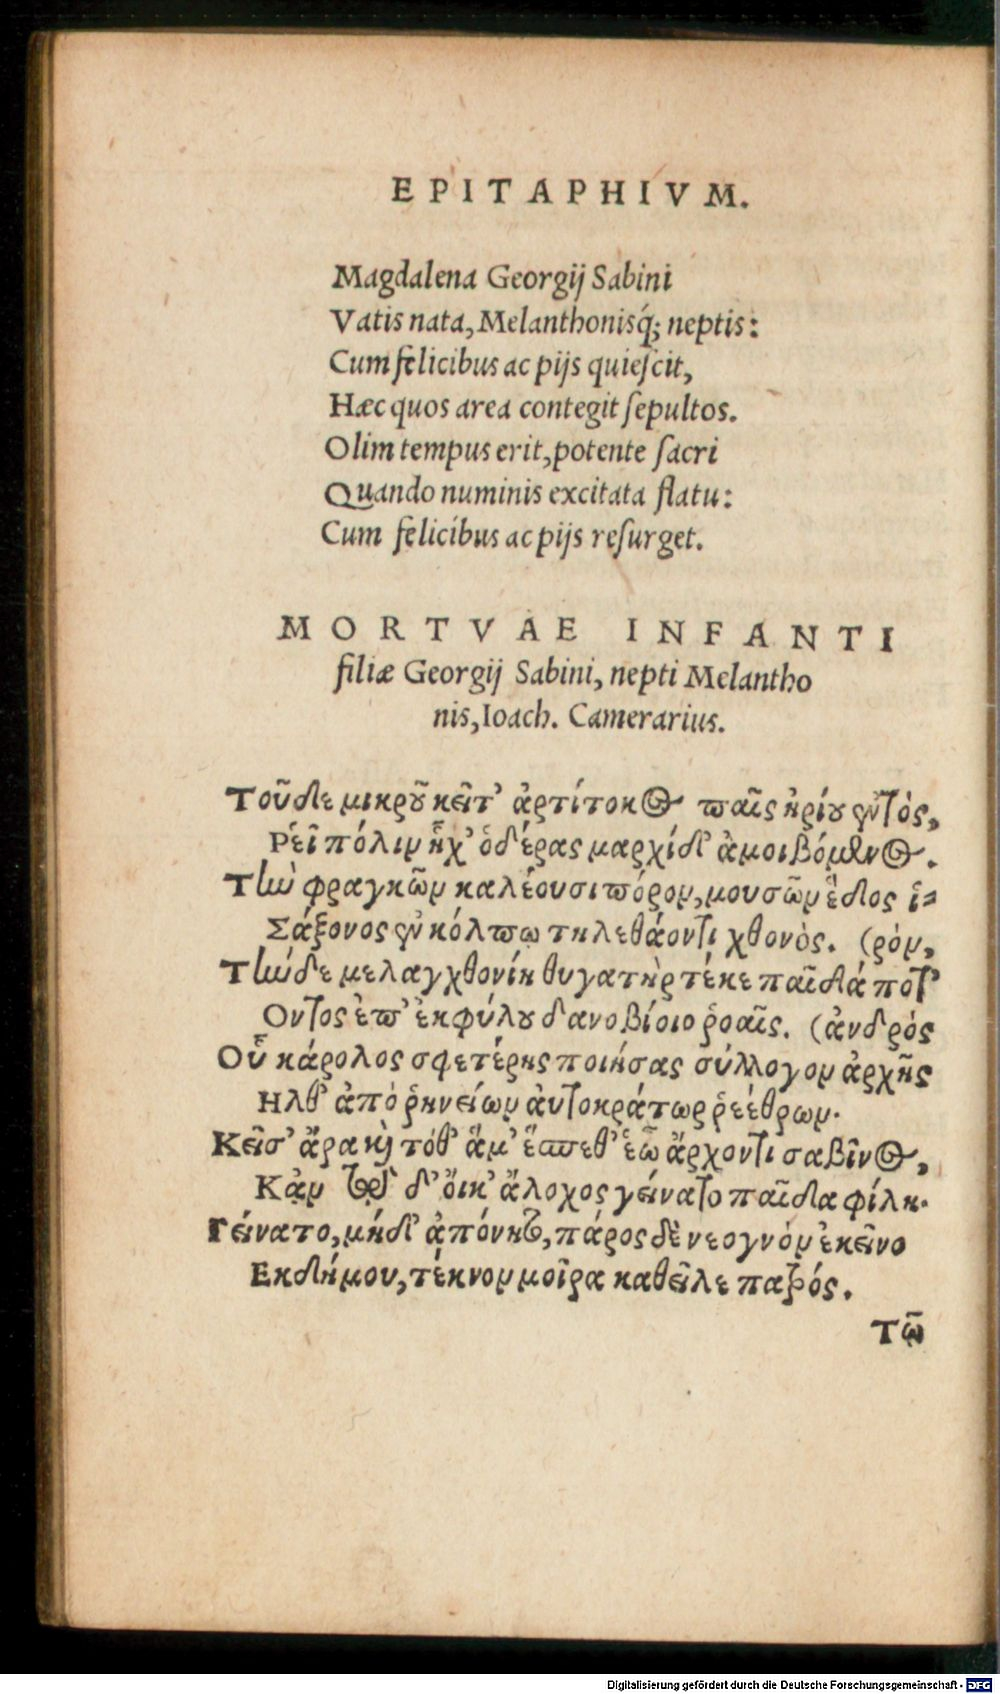 EPITAPHIVM.
Magdalena Georgij Sabini
Vatis nata, Melanthonisq́; neptis:
Cum felicibus ac pijs quieſcit,
Hæc quos area contegit ſepultos.
Olim tempus erit, potente ſacri
Quando numinis excitata flatu:
Cum felicibus ac pijs reſurget.
MORTVAE INFANTI
filiæ Georgij Sabini, nepti Melantho
nis, Ioach. Camerarius.
Τοῦδε μικροῦ κεῖτ' ἀρτίτοκος παῖς ἠρίου ἐντὸς,
Ρεῖ πόλιν ἧχ' ὁδ' ἔρας μαρχίδ' ἀμοιβόμενος.
Τὼ φραγκῶν καλέουσι πόρον, μουσῶν ἕδος ἱ=
Σάξονος ἐν κόλπῳ τηλεθάοντι χθονὸς. (ρὸν,
Τὼδε μελαγχθονίη θυγατὴρ τέκε παῖδά ποτ'
Οντος ἐπ' ἐκφύλου δανοβίοιο ῥοαῖς. (ἀνδρὸς
Οὗ κάρολος σφετέρης ποιήσας σύλλογον ἀρχῆς
Ηλθ' ἀπὸ ῥηνείων ἀυτοκράτωρ ῥεέθρων.
Κεῖσ' ἄρα καὶ τόθ' ἅμ' ἕσπεθ' ἑῶ ἄρχοντι σαβῖνος,
Κᾀν δ' ὄικ' ἄλοχος γείνατο παῖδα φίλη.
Γείνατο, μήδ' ἀπόνητο, πάρος δὲ νεογνὸν ἐκεῖνο
Εκδήμου, τέκνον μοῖρα καθεῖλε πατρός.
Τῶ
Digitalisierung gefördert durch die Deutsche Forschungsgemeinschaft - DFG